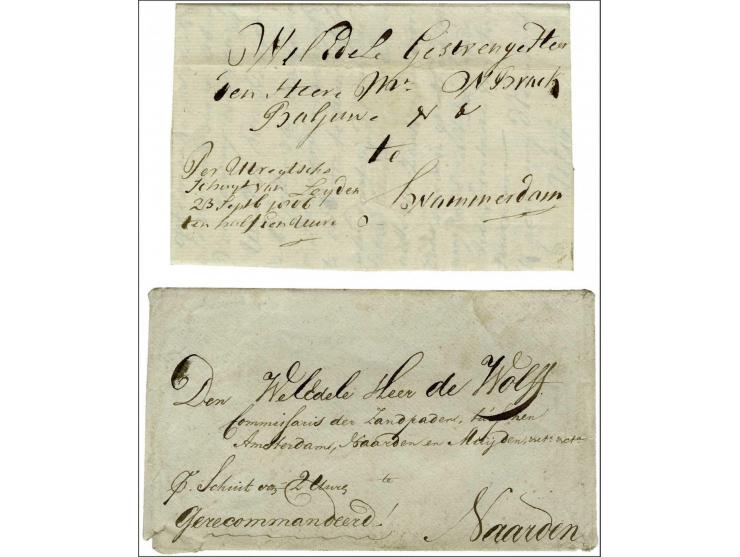 WelEdele Gestrenge Heer
den Heere Mr. N Brack
Baljuw. & &
te
Swammerdam
Per Utregtsche
Schuyt van Leyden
23 Septb 1806
ten half een Uure
Den WelEdele Heer de Wolff
Commissaris der Zandpaden, tusschen
Amsterdam, Naarden en Muyden,
te
P. Schuit van 2 Uure
Gerecommandeerd!
Naarden